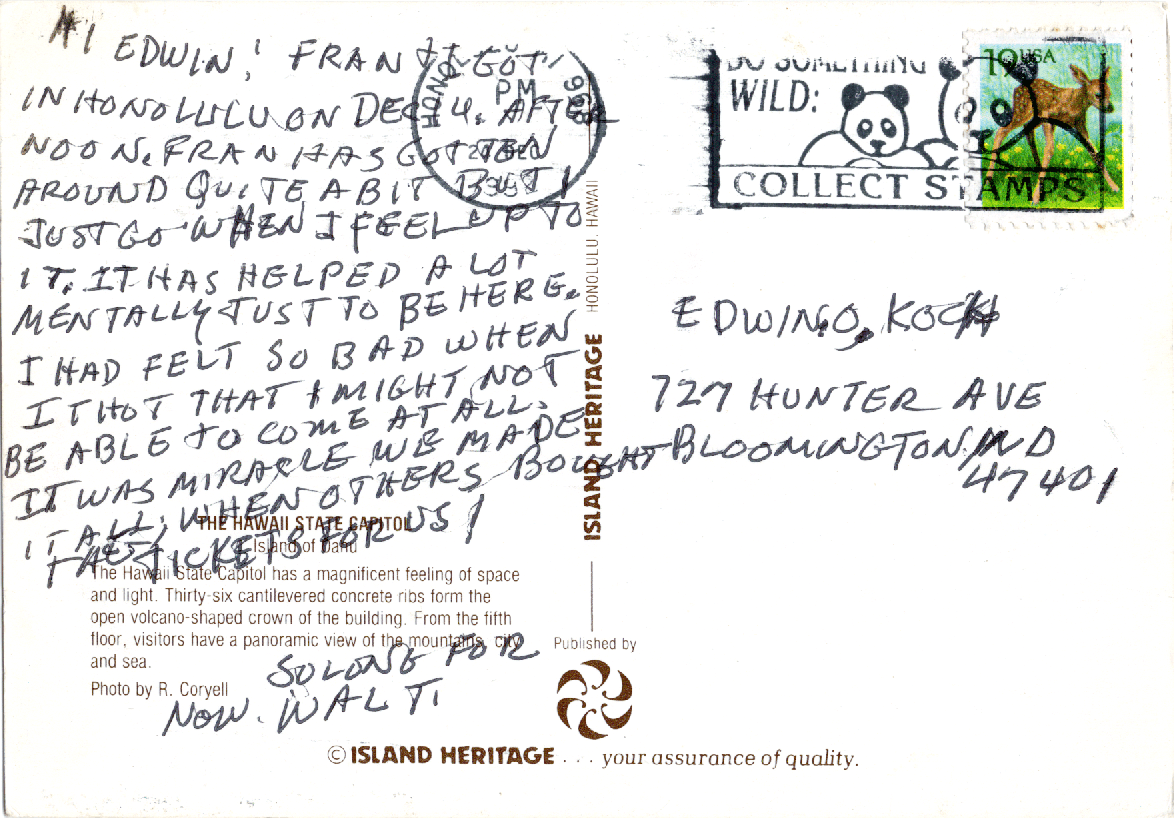 #1 EDWIN! FRAN & I GOT
IN HONOLULU ON DEC 14. AFTER
NOON. FRAN HAS GOTTEN
AROUND QUITE A BIT BUT I
JUST GO WHEN I FEEL UP TO
IT. IT HAS HELPED A LOT
MENTALLY JUST TO BE HERE.
I HAD FELT SO BAD WHEN
I THOT THAT I MIGHT NOT
BE ABLE TO COME AT ALL.
IT WAS MIRACLE WE MADE
IT ALL, WHEN OTHERS BOUGHT
TICKETS FOR US!
THE HAWAII STATE CAPITOL
Island of Oahu
The Hawaii State Capitol has a magnificent feeling of space
and light. Thirty-six cantilevered concrete ribs form the
open volcano-shaped crown of the building. From the fifth
floor, visitors have a panoramic view of the mountains, city
and sea.
Photo by R. Coryell
SO LONG FOR
NOW. WALT.
HONO
PM
968
ISLAND HERITAGE HONOLULU, HAWAII
Published by
© ISLAND HERITAGE . . . your assurance of quality.
DO SOMETHING
WILD:
COLLECT STAMPS
19 USA
EDWIN O. KOCH
727 HUNTER AVE
BLOOMINGTON IND
47401